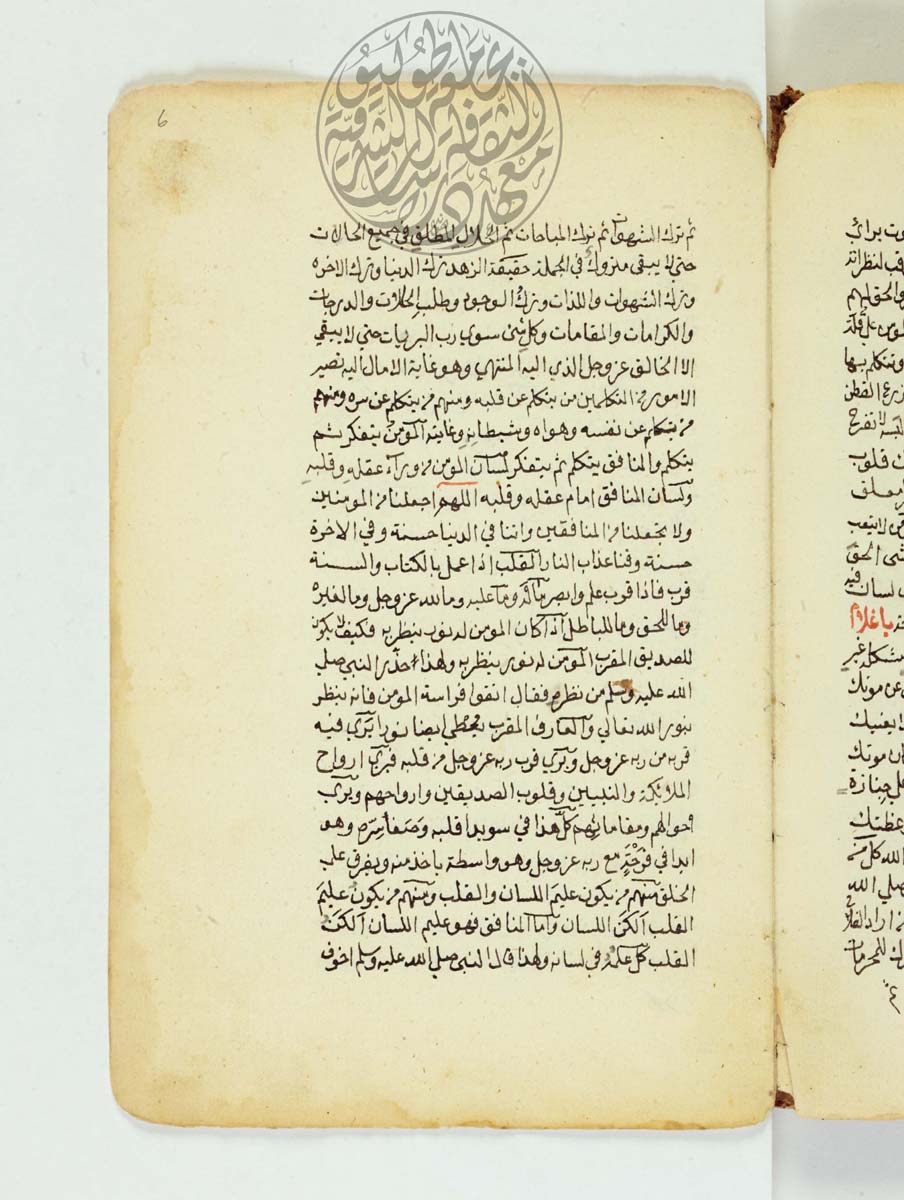 6
ثم ترك الشهوات ثم ترك المباحات ثم الحلال المطلق في جميع الحالات
حتي لا يبقى متروك في الجملة حقيقة الزهد ترك الدنيا وترك الاخره
وترك الشهوات واللذات وترك الوجود وطلب الحالات والدرجات
والكرامات والمقامات وكل شئ سوي رب البريات حتي لا يبقي
الا الخالق عز وجل الذي اليه المنتهي وهو غاية الامال اليه تصير
الامور من المتكلمين من يتكلم عن قلبه ومنهم من يتكلم عن سره ومنهم
من يتكلم عن نفسه وهواه وشيطانه وغايته المومن يتفكر ثم
يتكلم والمنافق يتكلم ثم يتفكر لسان المومن من ورآء عقله وقلبه
ولسان المنافق امام عقله وقلبه اللهم اجعلنا من المومنين
ولا تجعلنا من المنافقين واتنا في الدنيا حسنة وفي الاخرة
حسنة وقنا عذاب النار القلب اذا عمل بالكتاب والسنة
قرب فاذا قرب علم وابصر ماله وما عليه وما لله عز وجل وما لغيره
وما للحق وما للباطل اذا كان المومن له نور ينظر به فكيف لا يكون
للصديق المقرب المومن له نور ينظر به ولهذا حذر النبي صلي
الله عليه وسلم من نظره فقال اتقوا فراسة المومن فانه ينظر
بنور الله تعالي والعارف المقرب يعطي ايضا نورا يري فيه
قربه من ربه عز وجل ويري قرب ربه عز وجل من قلبه فيري ارواح
الملائكة والنبيين وقلوب الصديقين وارواحهم ويري
احوالهم ومقاماتهم كل هذا في سويدا قلبه وصفاء سره وهو
ابدا في فرحته مع ربه عز وجل وهو واسطة ياخذ منه ويفرق علي
الخلق منهم من يكون عليم اللسان والقلب ومنهم من يكون عليم
القلب الكن اللسان واما المنافق فهو عليم اللسان الكن
القلب كل علمه في لسانه ولهذا قال النبي صلي الله عليه وسلم اخوف